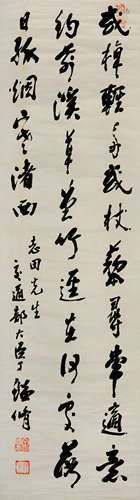 或棹輕舟或杖藜尋常適意
釣前溪草堂竹逕在何處落
日孤烟寒渚西
志田先生
交通部大臣丁鑑修